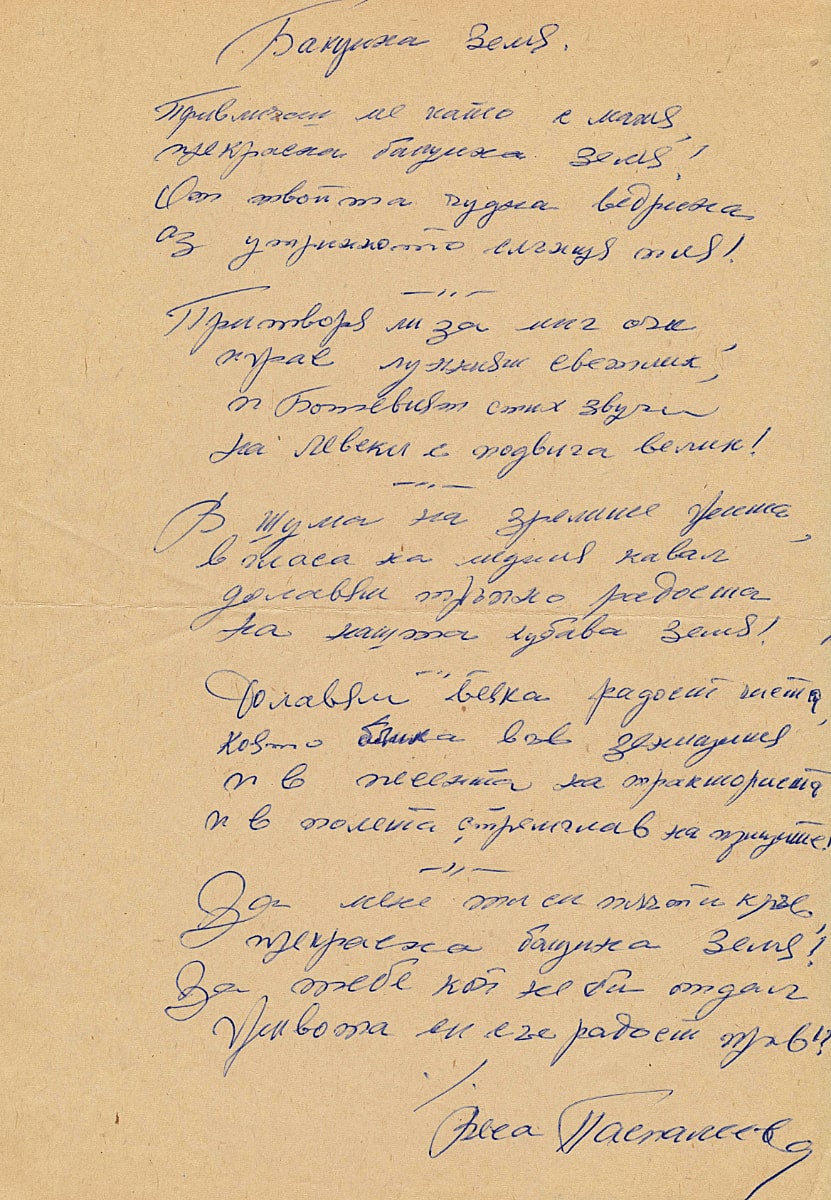 Бащина земя.
Привличаш ме като с магия,
прекрасна бащина земя!
От твойта чудна ведрина
аз утринното слънце пия!
—„—
Притворя ли за миг очи,
изгрев лъчист
и Ботевият стих звучи
на Левски с подвига велик!
—„—
В шума на зрелите жита,
в гласа на медния кавал
долавям тръпно радостта
на нашта хубава земя!
—„—
Долавям всяка радост чиста,
която блика във
и в песента на тракториста
и в полета стремглав на птиците!
—„—
За мене ти си плът и кръв,
прекрасна бащина земя!
За тебе кой не би отдал
живота си със радост пръв!?
Веса Паспалеева